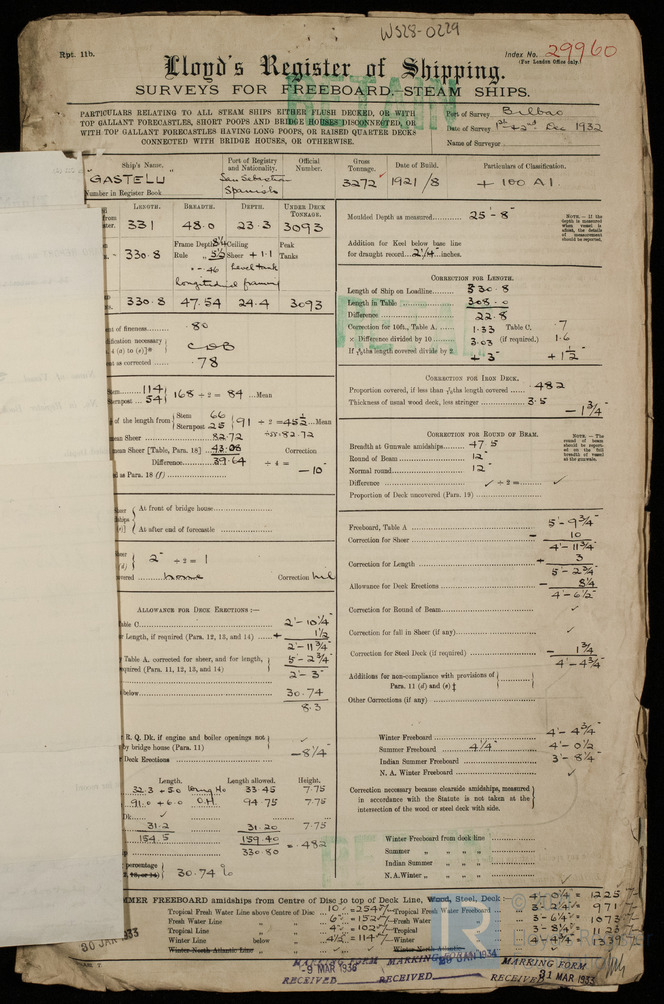 WS28-0229
Rpt. 11b.
Index No. 29960
(For London Office only.)
Lloyd's Register of Shipping.
SURVEYS FOR FREEBOARD.—STEAM SHIPS.
RETAIN
PARTICULARS RELATING TO ALL STEAM SHIPS EITHER FLUSH DECKED, OR WITH
TOP GALLANT FORECASTLES, SHORT POOPS AND BRIDGE HOUSES DISCONNECTED, OR
WITH TOP GALLANT FORECASTLES HAVING LONG POOPS, OR RAISED QUARTER DECKS
CONNECTED WITH BRIDGE HOUSES, OR OTHERWISE.
Port of Survey Bilbao
Date of Survey 1st & 2nd Dec 1932
Name of Surveyor
Ship's Name.
"GASTELU"
Number in Register Book
Port of Registry and Nationality.
San Sebastian
Spanish
Official Number.
Gross Tonnage.
3272
Date of Build.
1921/8
Particulars of Classification.
+ 100 A1.
LENGTH. BREADTH. DEPTH. UNDER DECK TONNAGE.
331 48.0 23.3 3093
330.8 Frame Depth 8 1/2 Ceiling Peak
Rule " 5 1/2 Sheer + 1.1 Tanks
.. - 46 level tank
longitudinal framing
330.8 47.54 24.4 3093
nt of fineness .80
ification necessary
4 (a) to (e)]*
CDB
nt as corrected .78
Stem 114
Sternpost 54
168 ÷ 2 = 84 ...Mean
of the length from
Stem 66
Sternpost 25
91 ÷ 2 = 45 1/2 ...Mean
mean Sheer 82.72
÷.55 = 82.72
mean Sheer [Table, Para. 18] 43.08
Correction
Difference 39.64 ÷ 4 =
d as Para. 18 (f)
— 10"
At front of bridge house
At after end of forecastle
2" ÷ 2 = 1
overed none Correction nil
ALLOWANCE FOR DECK ERECTIONS :—
ble C 2'-10 1/4"
Length, if required (Para. 12, 13, and 14) + 1 1/2
2'-11 3/4"
Table A, corrected for sheer, and for length,
equired (Para. 11, 12, 13, and 14) 5'-2 3/4"
2'-3"
below 30.74
8.3
R. Q. Dk. if engine and boiler openings not
by bridge house (Para. 11) ✓
Deck Erections — 8 1/4"
Length. Length allowed. Height.
32.3 + 5.0 33.45 7.75
91.0 + 6.0 O.H. 94.75 7.75
Dk. ✓
31.2 31.20 7.75
154.5 159.40 = .482
330.80
percentage
30.74 %
Moulded Depth as measured 25'-8"
NOTE.—If the
Depth is measured
when vessel is
afloat, the details
of measurement
should be reported.
Addition for Keel below base line
for draught record 2 1/4" inches.
CORRECTION FOR LENGTH.
Length of Ship on Loadline 330.8
Length in Table 308.0
Difference 22.8
Correction for 10ft., Table A. 1.33 Table C. .7
× Difference divided by 10 3.03 (if required.) 1.6
If 6/10ths length covered divide by 2 — 3" + 1 1/2"
CORRECTION FOR IRON DECK.
Proportion covered, if less than 7/10ths length covered .482
Thickness of usual wood deck, less stringer 3.5
— 1 3/4"
CORRECTION FOR ROUND OF BEAM.
Breadth at Gunwale amidships 47.5
Round of Beam 12"
Normal round 12"
Difference ✓ ÷ 2 = ✓
Proportion of Deck uncovered (Para. 19)
NOTE.—The
round of beam
should be report-
ed on the full
breadth of vessel
at the gunwale.
Freeboard, Table A 5'-9 3/4"
Correction for Sheer — 10
4'-11 3/4"
Correction for Length + 3
5'-2 3/4"
Allowance for Deck Erections — 8 1/4
4'-6 1/2"
Correction for Round of Beam ✓
Correction for fall in Sheer (if any) ✓
Correction for Steel Deck (if required) — 1 3/4"
4'-4 3/4"
Additions for non-compliance with provisions of
Para. 11 (d) and (e) ‡
Other Corrections (if any)
Winter Freeboard 4'-4 3/4"
Summer Freeboard 4 1/4" 4'-0 1/2"
Indian Summer Freeboard 3'-8 1/4"
N. A. Winter Freeboard ✓
Correction necessary because clearside amidships, measured
in accordance with the Statute is not taken at the
intersection of the wood or steel deck with side.
Winter Freeboard from deck line
Summer " " "
Indian Summer " "
N. A. Winter " " ✓
MMER FREEBOARD amidships from Centre of Disc to top of Deck Line, Wood, Steel, Deck :— 4'-0 1/4" = 1225
Tropical Fresh Water Line above Centre of Disc 10" = 254 Tropical Fresh Water Freeboard 3'-2 1/4" = 971
Fresh Water Line " " 6" = 152 Fresh Water " 3'-6 1/4" = 1073
Tropical Line " " 4" = 102 Tropical " 3'-8 1/4" = 1123
Winter Line below " 4 1/2" = 114 Winter " 1339
Winter North Atlantic Line " Winter North Atlantic "
30 JAN 1933
MARKING FORM
-9 MAR 1933
RECEIVED
MARKING FORM
29 JAN 1934
RECEIVED
MARKING FORM
RECEIVED 31 MAR 1933
R
Lloyd's Register